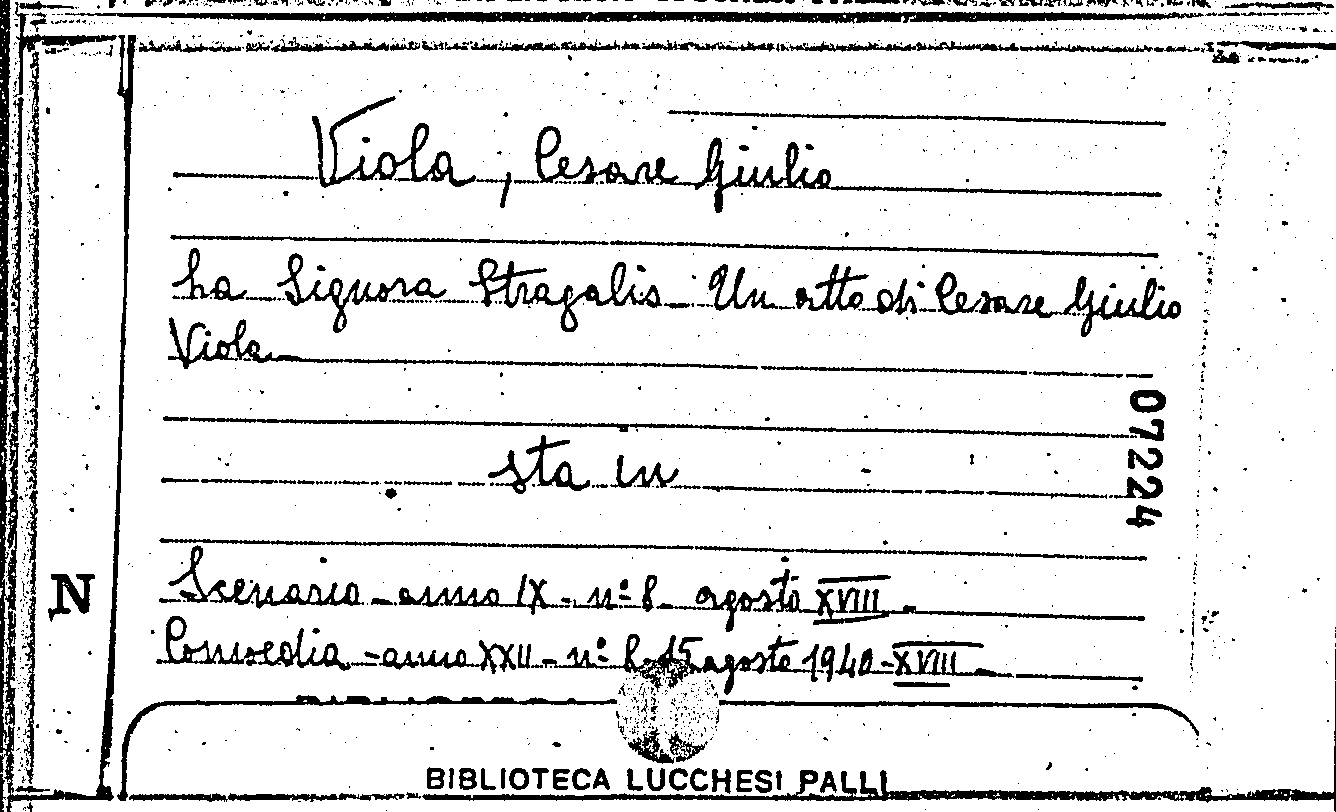 Viola, Cesare Giulio
La Signora Stragalis - Un atto di Cesare Giulio
Viola -
07224
sta in
N
Scenario - anno IX - nº 8 - agosto XVIII -
Comoedia - anno XXII - nº 8 - 15 agosto 1940 - XVIII -
BIBLIOTECA LUCCHESI PALLI